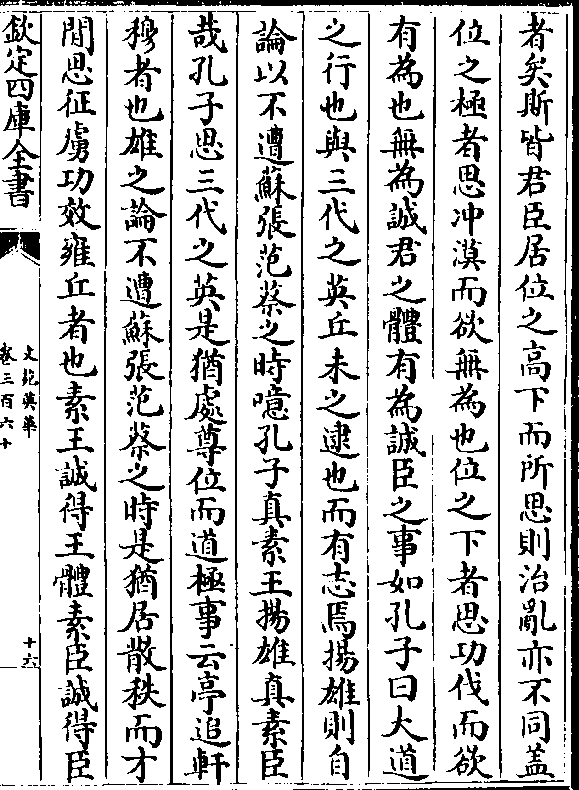 者矣斯皆君臣居位之高下而所思則治亂亦不同盖
位之極者思冲漠而欲無為也位之下者思功伐而欲
有為也無為誠君之體有為誠臣之事如孔子曰大道
之行也與三代之英丘未之逮也而有志焉揚雄則自
論以不遭蘇張范蔡之時噫孔子真素王揚雄真素臣
哉孔子思三代之英是猶處尊位而道極事云亭追軒
穆者也雄之論不遭蘇張范蔡之時是猶居散秩而才
閒思征虜功效雍丘者也素王誠得王體素臣誠得臣
欽定四庫全書
文苑英華
卷三百六十
十六